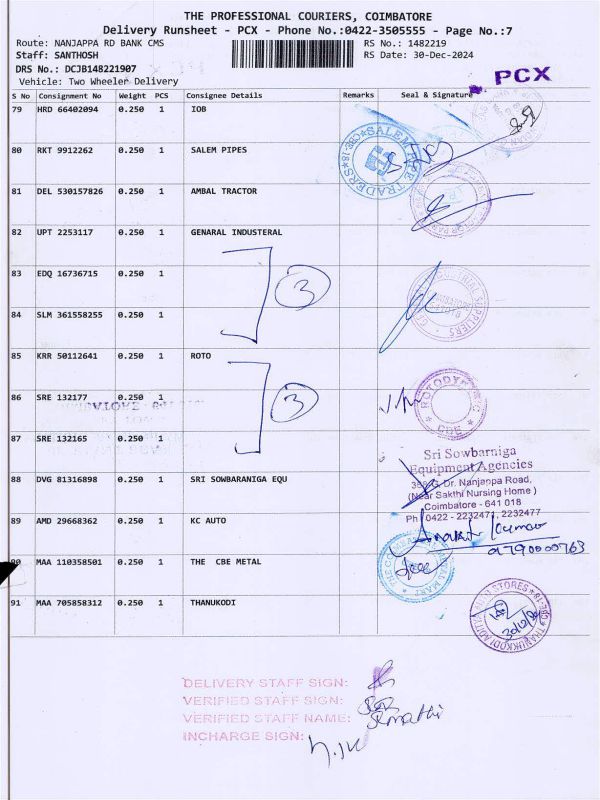 THE PROFESSIONAL COURIERS, COIMBATORE
Delivery Runsheet - PCX - Phone No.:0422-3505555 - Page No.:7
Route: NANJAPPA RD BANK CMS
RS No.: 1482219
Staff: SANTHOSH
RS Date: 30-Dec-2024
DRS No.: DCJB148221907
Vehicle: Two Wheeler Delivery
PCX
S No Consignment No Weight PCS Consignee Details Remarks Seal & Signature
79 HRD 66402094 0.250 1 IOB
80 RKT 9912262 0.250 1 SALEM PIPES
SALEM PIPE TRADERS
81 DEL 530157826 0.250 1 AMBAL TRACTOR
82 UPT 2253117 0.250 1 GENARAL INDUSTERAL
83 EDQ 16736715 0.250 1
3
84 SLM 361558255 0.250 1
85 KRR 50112641 0.250 1 ROTO
86 SRE 132177 0.250 1
3
CBE
87 SRE 132165 0.250 1
Sri Sowbarniga
Equipment Agencies
88 DVG 81316898 0.250 1 SRI SOWBARANIGA EQU
Dr. Nanjappa Road,
(Near Sakthi Nursing Home )
Coimbatore - 641 018
Ph : 0422 - 2232471, 2232477
89 AMD 29668362 0.250 1 KC AUTO
Kumar
9790000763
90 MAA 110358501 0.250 1 THE CBE METAL
91 MAA 705858312 0.250 1 THANUKODI
DELIVERY STAFF SIGN:
VERIFIED STAFF SIGN:
VERIFIED STAFF NAME:
INCHARGE SIGN: